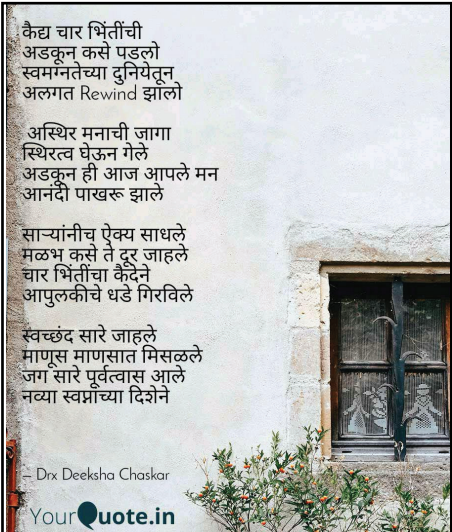 कैद्य चार भिंतींची
अडकून कसे पडलो
स्वमग्नतेच्या दुनियेतून
अलगत Rewind झालो
अस्थिर मनाची जागा
स्थिरत्व घेऊन गेले
अडकून ही आज आपले मन
आनंदी पाखरू झाले
साऱ्यांनीच ऐक्य साधले
मळभ कसे ते दूर जाहले
चार भिंतींचा कैदेने
आपुलकीचे धडे गिरविले
स्वच्छंद सारे जाहले
माणूस माणसात मिसळले
जग सारे पूर्वत्वास आले
नव्या स्वप्नाच्या दिशेने
– Drx Deeksha Chaskar
YourQuote.in